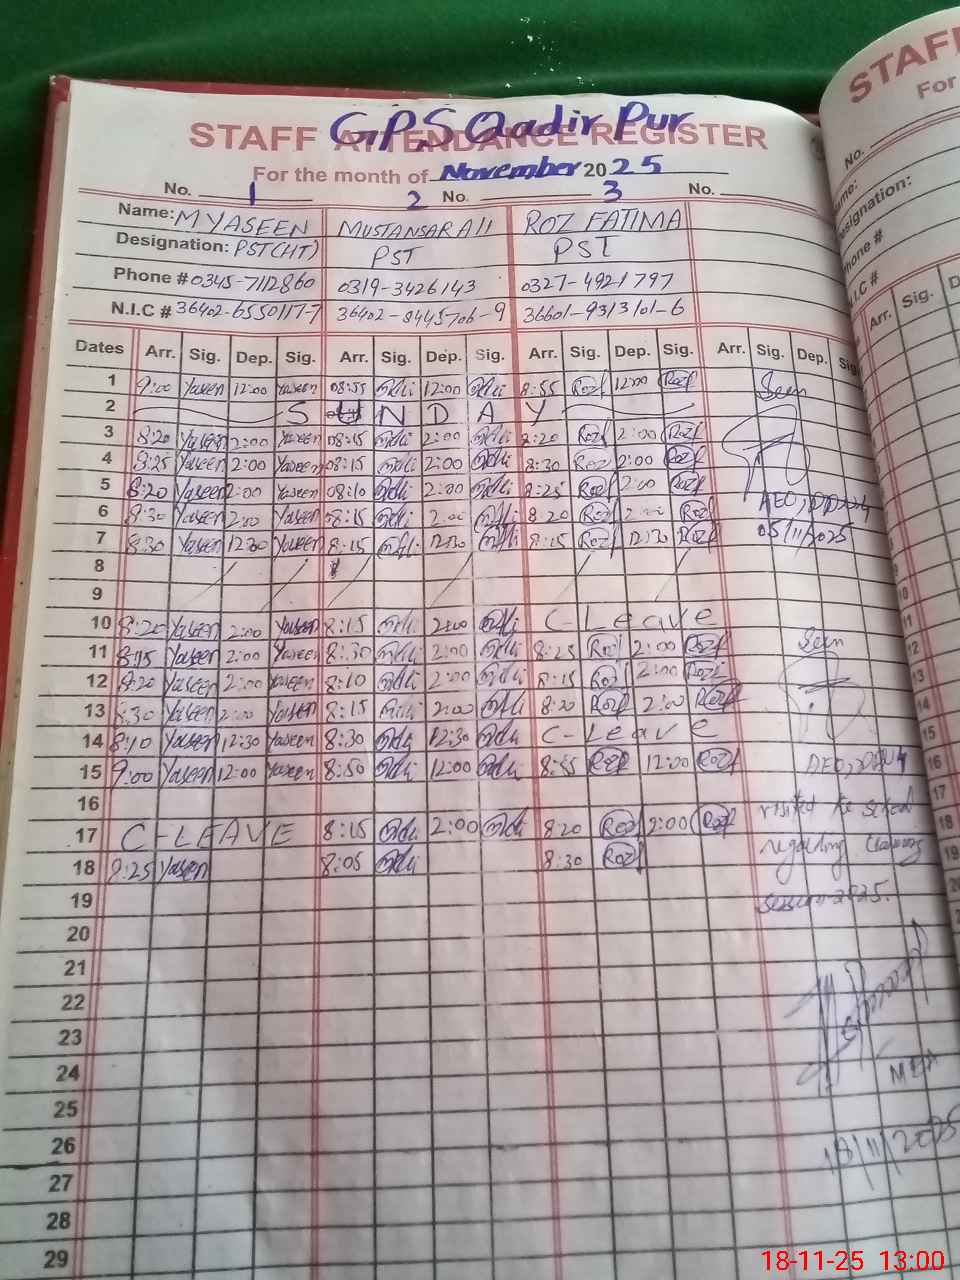 GPS Qadir Pur
STAFF ATTENDANCE REGISTER
For the month of November 2025
No. 1 2 No. 3 No.
Name: M YASEEN MUSTANSAR Ali ROZ FATIMA
Designation: PST(HT) PST PST
Phone # 0345-7112860 0319-3426143 0327-4921797
N.I.C # 36402-6550117-7 36402-8445706-9 36601-9313101-6
Dates Arr. Sig. Dep. Sig. Arr. Sig. Dep. Sig. Arr. Sig. Dep. Sig. Arr. Sig. Dep. Sig.
1 9:00 Yaseen 12:00 Yaseen 08:55 12:00 8:55 Roz 12:00 Roz Seen
2 SUNDAY
3 8:20 Yaseen 2:00 Yaseen 08:15 2:00 8:20 Roz 2:00 Roz
4 8:25 Yaseen 2:00 Yaseen 08:15 2:00 8:30 Roz 2:00 Roz
5 8:20 Yaseen 2:00 Yaseen 08:10 2:00 8:25 Roz 2:00 Roz
6 8:30 Yaseen 2:00 Yaseen 08:15 2:00 8:20 Roz 2:00 Roz
7 8:30 Yaseen 12:30 Yaseen 8:15 12:30 8:15 Roz 12:30 Roz 05/11/2025
8
9
10 8:20 Yaseen 2:00 Yaseen 8:15 2:00 C-Leave
11 8:15 Yaseen 2:00 Yaseen 8:30 2:00 8:25 Roz 2:00 Roz Seen
12 8:20 Yaseen 2:00 Yaseen 8:10 2:00 8:15 Roz 2:00 Roz
13 8:30 Yaseen 2:00 Yaseen 8:15 2:00 8:20 Roz 2:00 Roz
14 8:10 Yaseen 12:30 Yaseen 8:30 12:30 C-Leave
15 9:00 Yaseen 12:00 Yaseen 8:50 12:00 8:55 Roz 12:00 Roz
16 visited the school
17 C-LEAVE 8:15 2:00 8:20 Roz 2:00 Roz regarding
18 8:25 Yaseen 8:05 8:30 Roz
19 2025.
20
21
22
23
24 MEA
25
26 18/11/2025
27
28
29
STAFF
For
No.
Name:
Designation:
Phone #
N.I.C #
Arr. Sig.
12
13
14
15
16
17
18
19
18-11-25 13:00